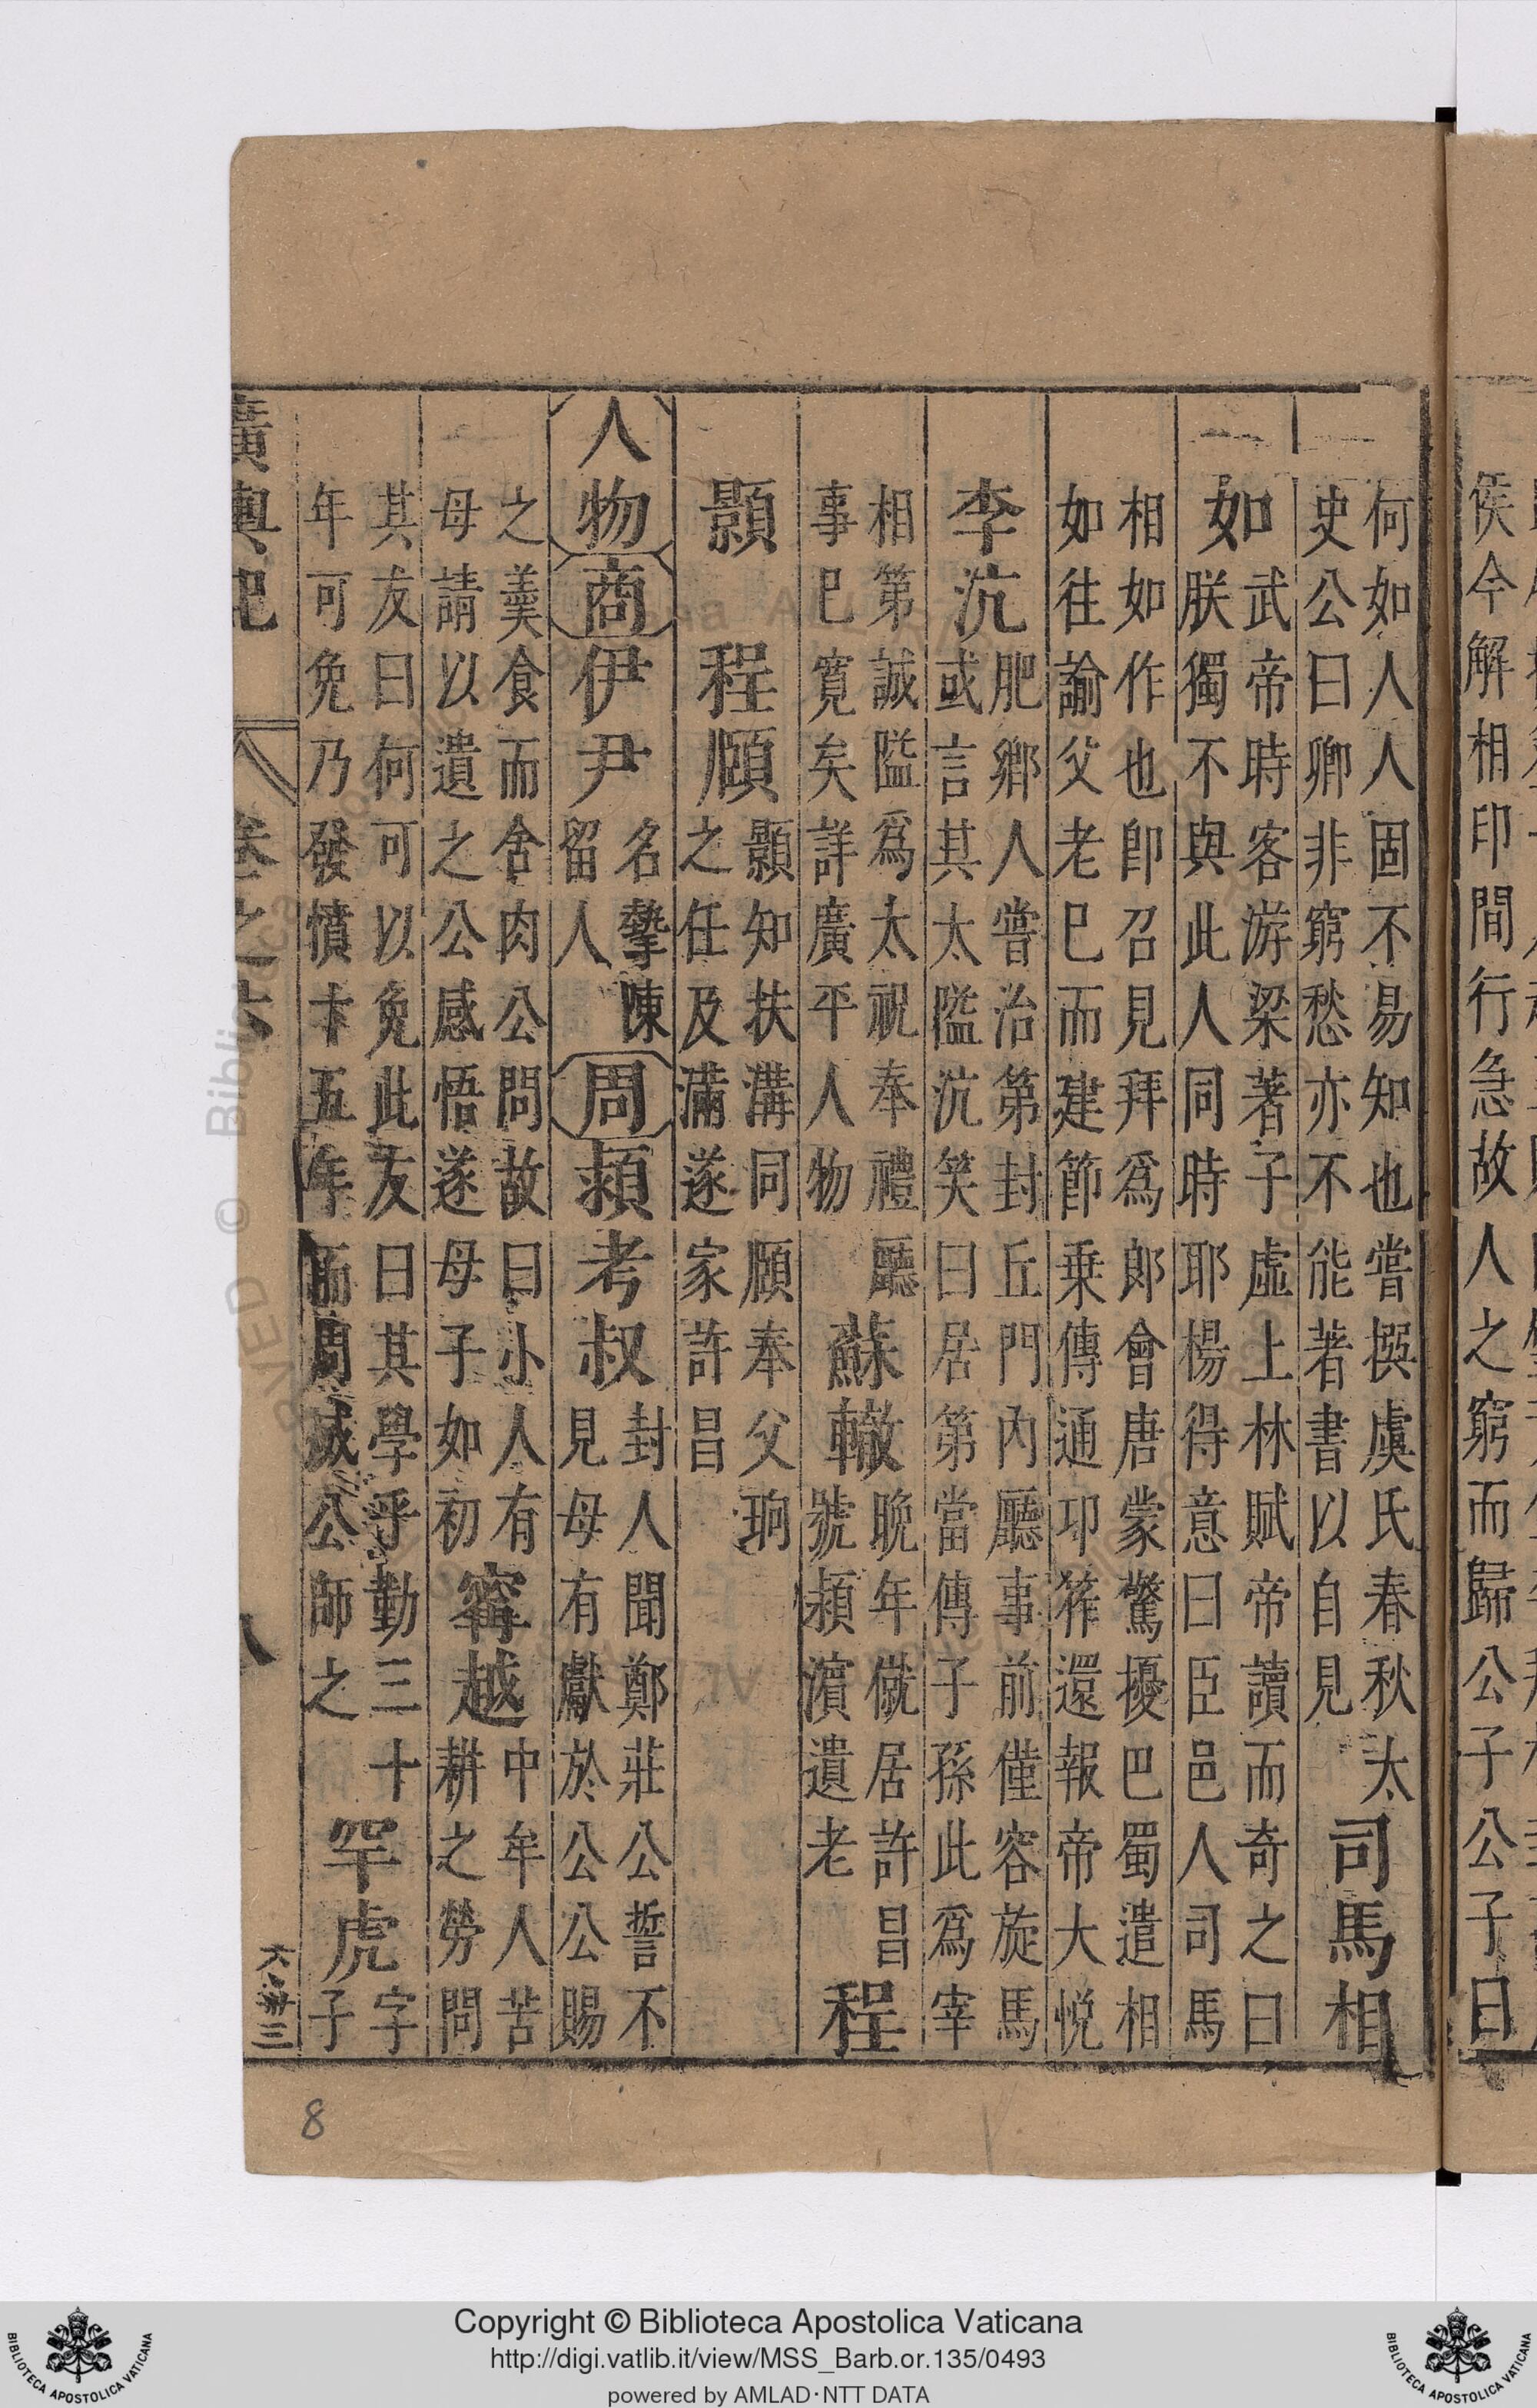 侯今解相印間行急故人之窮而歸公子公子曰
何如人人固不易知也嘗撰虞氏春秋太
史公曰卿非窮愁亦不能著書以自見
司馬相
如
武帝時客游梁著子虛上林賦帝讀而奇之曰
朕獨不與此人同時耶楊得意曰臣邑人司馬
相如作也卽召見拜爲郞會唐蒙驚擾巴蜀遣相
如往諭父老巳而建節乗傳通卭筰還報帝大悅
李沆
肥鄉人嘗治第封丘門內廳事前僅容旋馬
或言其太隘沆笑曰居第當傳子孫此爲宰
相第誠隘爲太祝奉禮廳
事巳寛矣詳廣平人物
蘇轍
晚年僦居許昌
號潁濵遺老
程
顥
程頤
顥知扶溝同頤奉父珦
之任及滿遂家許昌
人物
商
伊尹
名摯陳
留人
周
潁考叔
封人聞鄭莊公誓不
見母有獻於公公賜
之羮食而舍肉公問故曰小人有
母請以遺之公感悟遂母子如初
寗越
中牟人苦
耕之勞問
其友曰何可以免此友曰其學乎勤三十
年可免乃發憤十五年而周威公師之
罕虎
字
子
廣輿記
卷之六
八
8
Copyright © Biblioteca Apostolica Vaticana
http://digi.vatlib.it/view/MSS_Barb.or.135/0493
powered by AMLAD·NTT DATA
BIBLIOTECA APOSTOLICA VATICANA
BIBLIOTECA APOSTOLICA VATICANA